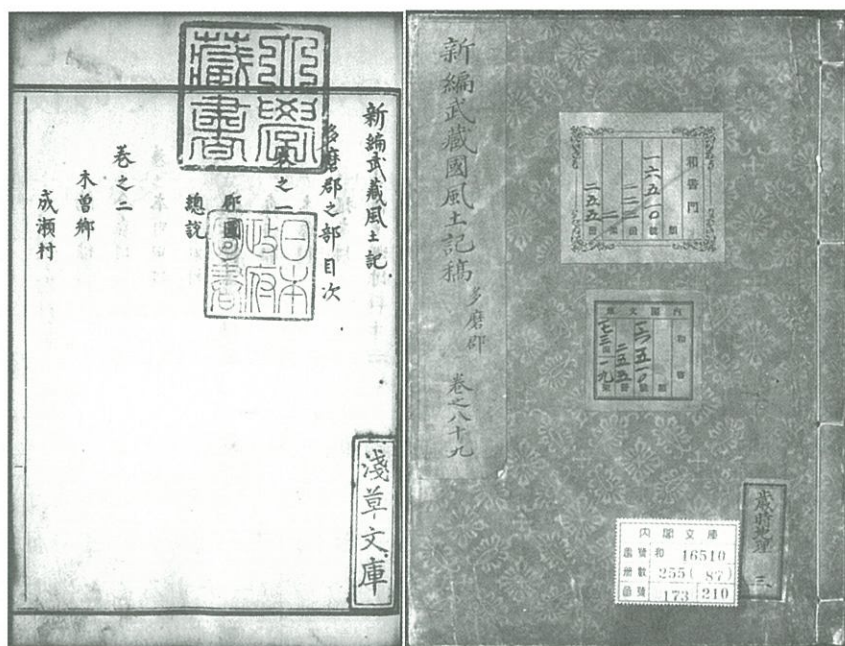 新編武藏國風土記稿
多磨郡
卷之八十九
和書門
類
一六五一〇號
二五五冊
內閣文庫
和書
類
一六五一〇號
二五五冊
內閣文庫
番號 和 16510
冊數 255(87)
函號 173 210
歲時地理 三
新編武藏風土記
多磨郡之部目次
卷之一
郡圖
總說
卷之二
木曾鄉
成瀬村
淺草文庫
大學藏書
日本政府圖書